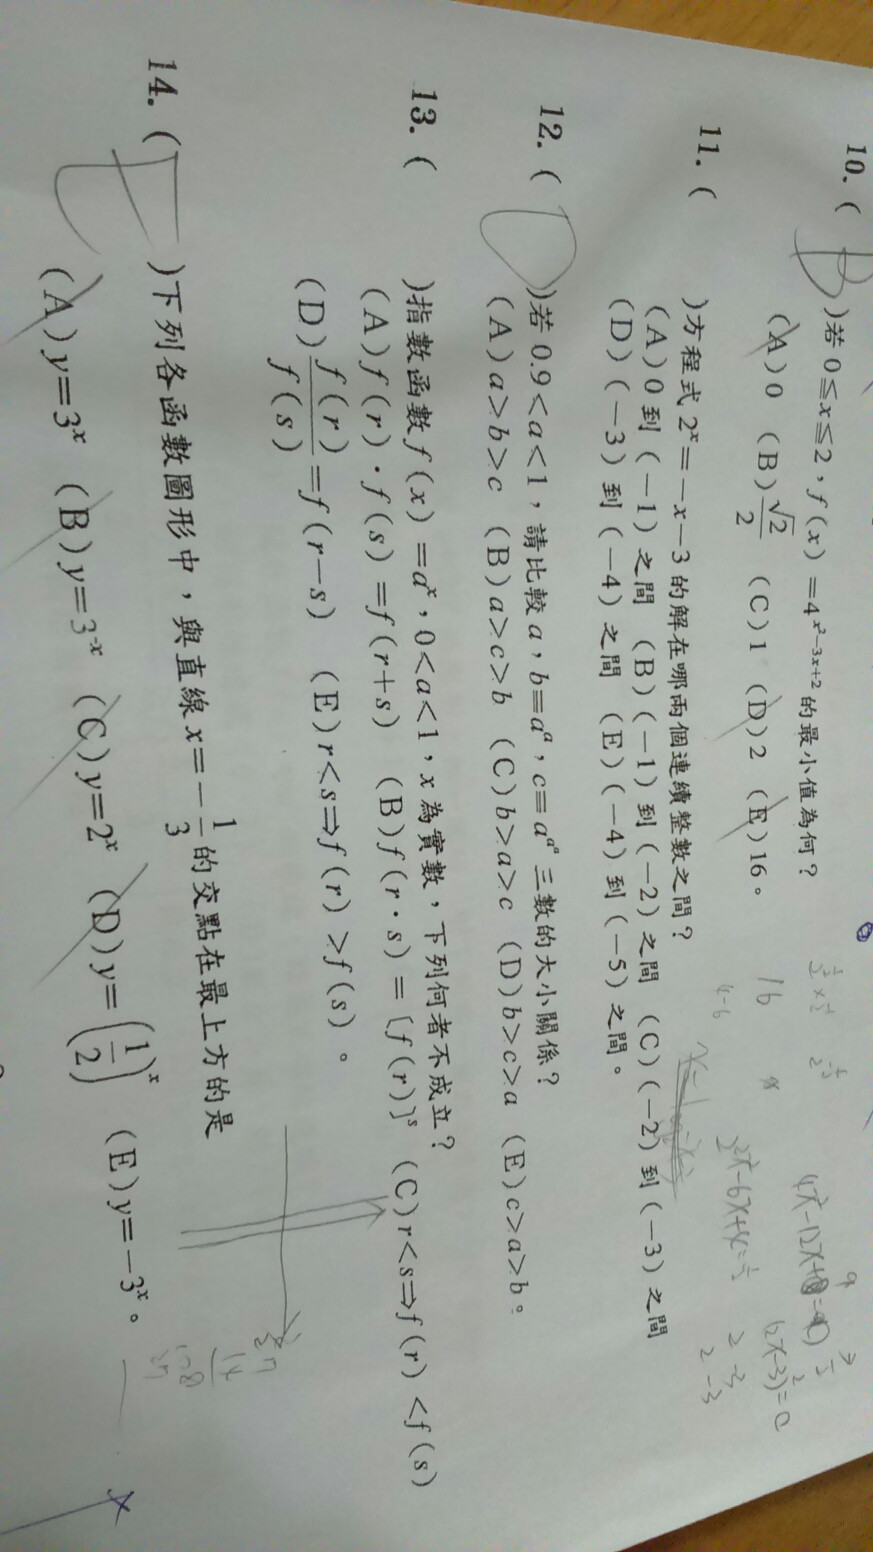 10. ( B )若 0≦x≦2，f(x)=4^{x²-3x+2} 的最小值為何？
(A)0 (B)√2/2 (C)1 (D)2 (E)16。
11. ( )方程式 2^x=-x-3 的解在哪兩個連續整數之間？
(A)0 到(-1)之間 (B)(-1)到(-2)之間 (C)(-2)到(-3)之間
(D)(-3)到(-4)之間 (E)(-4)到(-5)之間。
12. ( D )若 0.9<a<1，請比較 a，b=a^a，c=a^{a^a} 三數的大小關係？
(A)a>b>c (B)a>c>b (C)b>a>c (D)b>c>a (E)c>a>b。
13. ( )指數函數 f(x)=a^x，0<a<1，x 為實數，下列何者不成立？
(A)f(r)·f(s)=f(r+s) (B)f(r·s)=[f(r)]^s (C)r<s⇒f(r)<f(s)
(D)f(r)/f(s)=f(r-s) (E)r<s⇒f(r)>f(s)。
14. ( )下列各函數圖形中，與直線 x=-1/3 的交點在最上方的是
(A)y=3^x (B)y=3^{-x} (C)y=2^x (D)y=(1/2)^x (E)y=-3^x。
16